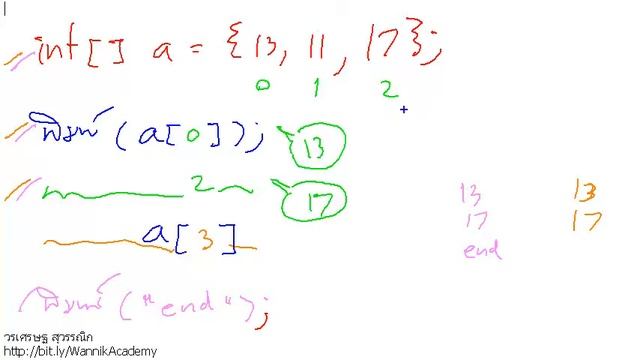 int[] a = {13, 11, 17};
0 1 2
พิมพ์ (a[0]); 13
2 17
13 13
17 17
a[3]
end
พิมพ์ ("end");
วรเศรษฐ สุวรรณิก
http://bit.ly/WannikAcademy